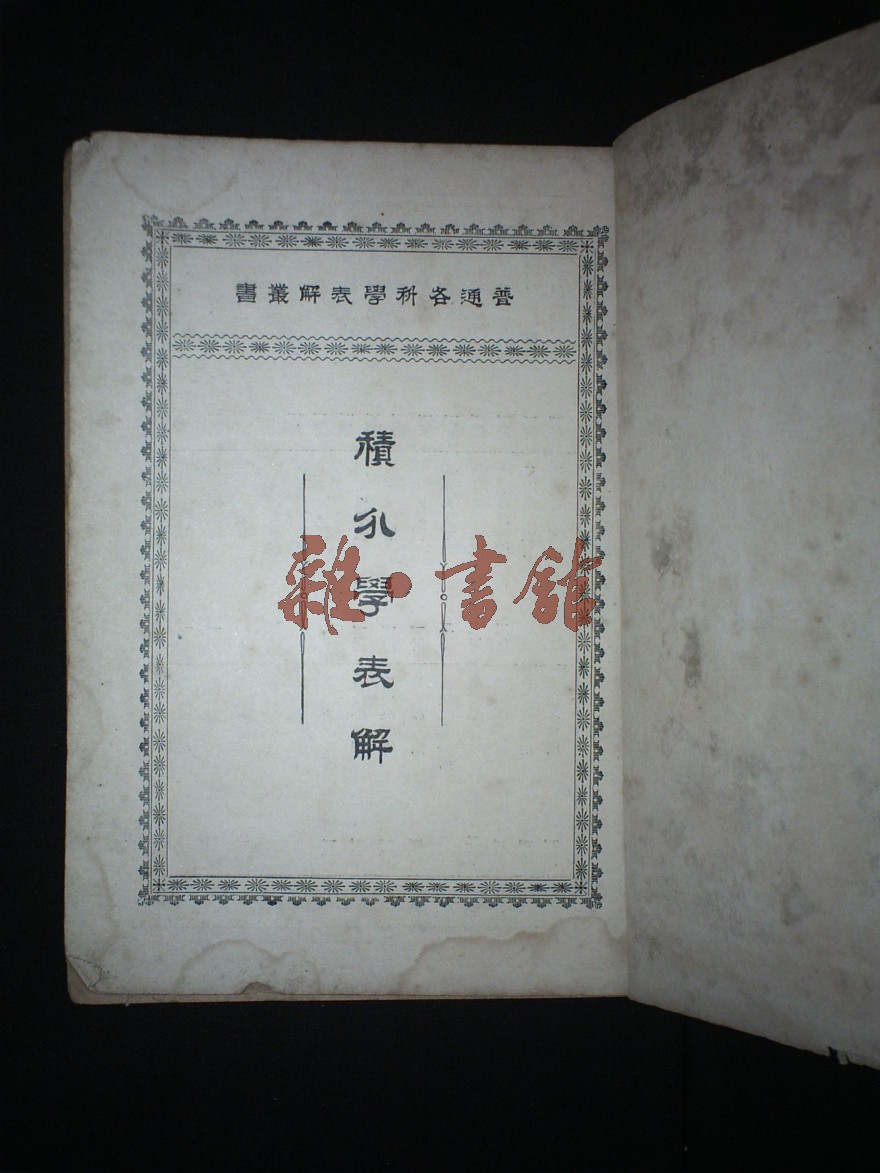 普通各科學表解叢書
積分學表解
雜·書館